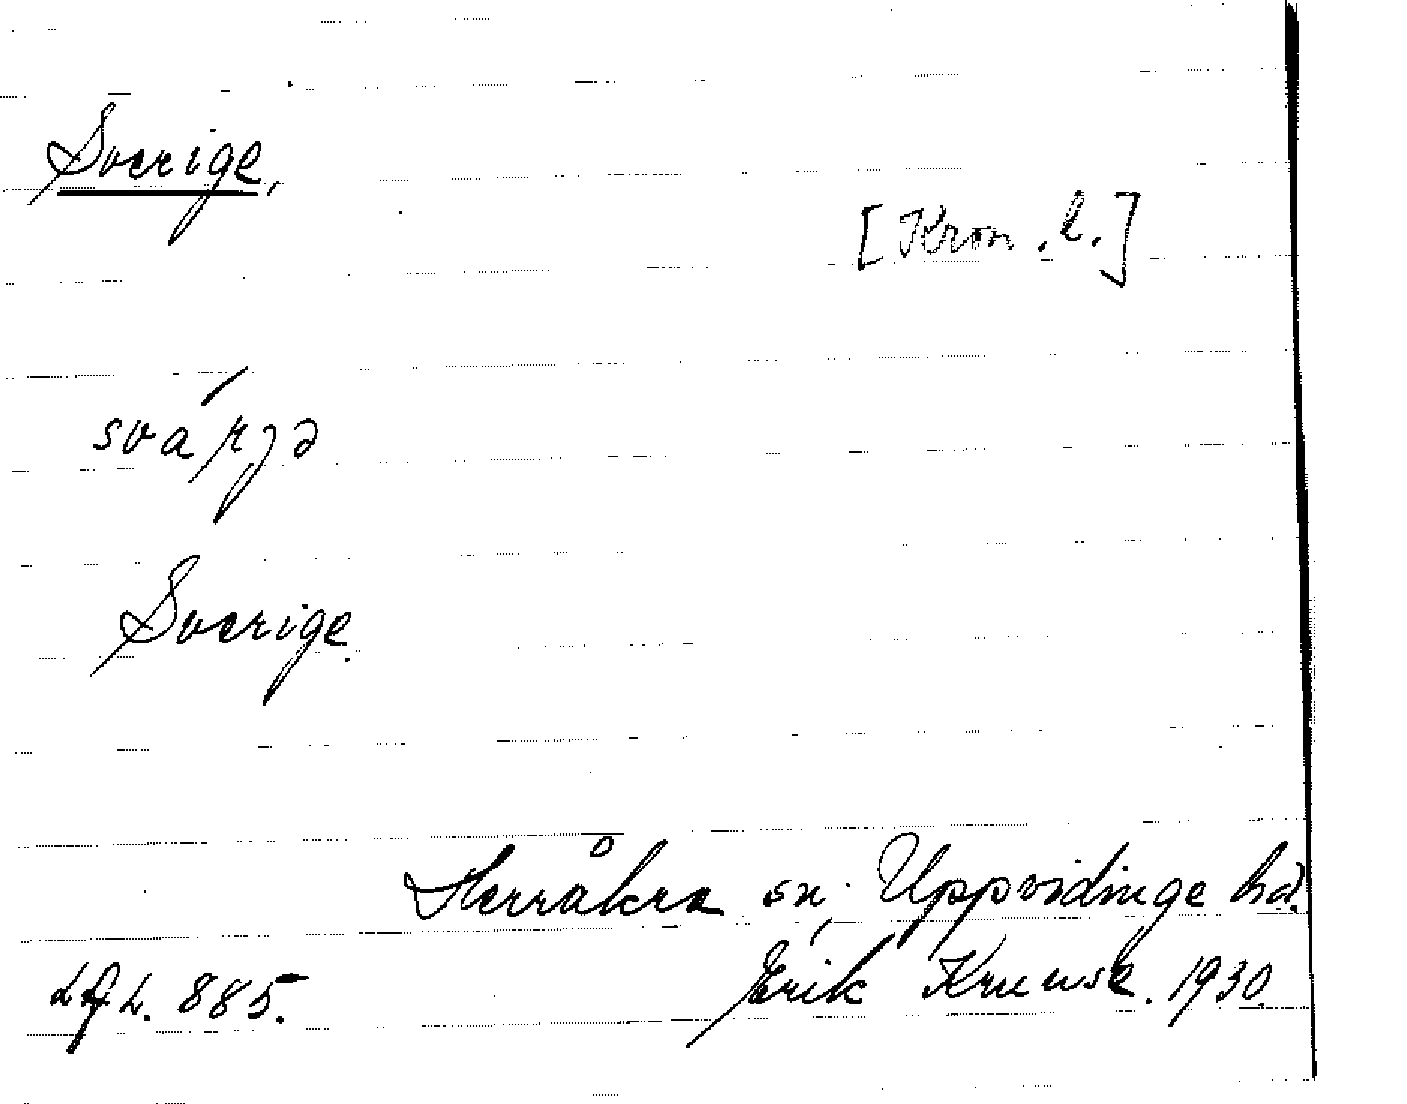 Sverige,
[Kron. l.]
svárjə
Sverige.
Herråkra sn, Uppvidinge hd.
Erik Kruuse. 1930.
LfL. 885.